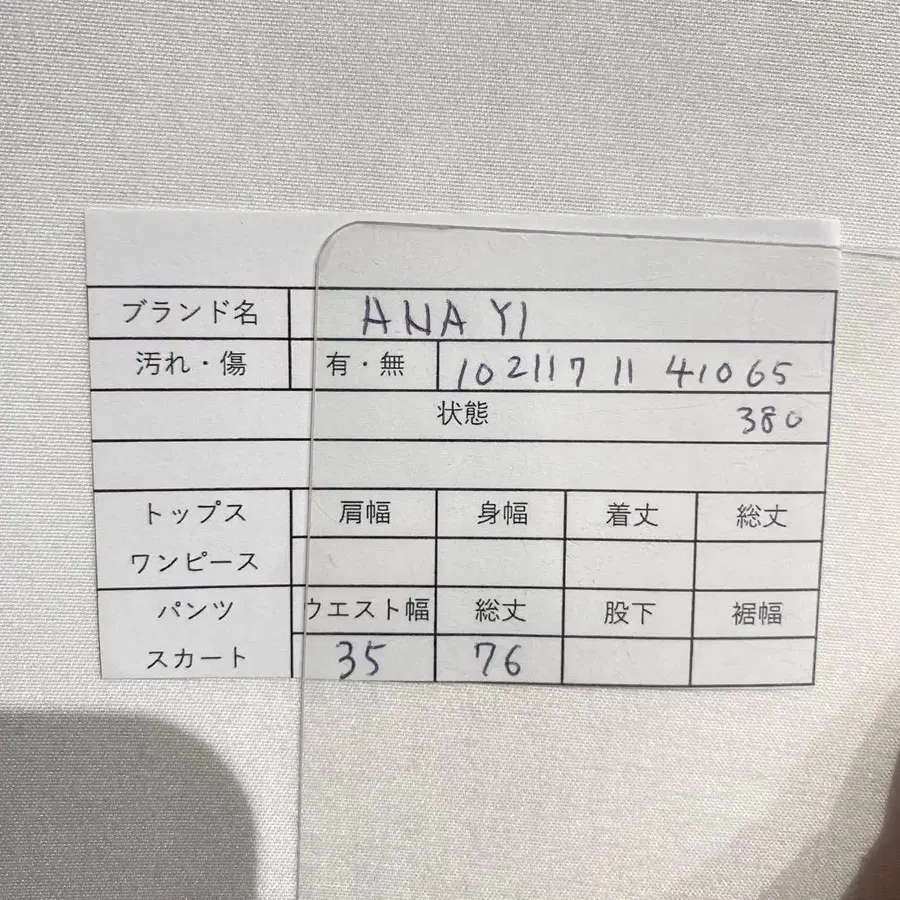 ブランド名 ANAYI
汚れ・傷 有・無 102117 11 41065
状態 380
トップス 肩幅 身幅 着丈 総丈
ワンピース
パンツ ウエスト幅 総丈 股下 裾幅
スカート 35 76